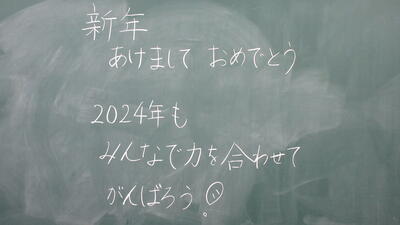 新年
あけまして おめでとう
2024年も
みんなで力を合わせて
がんばろう